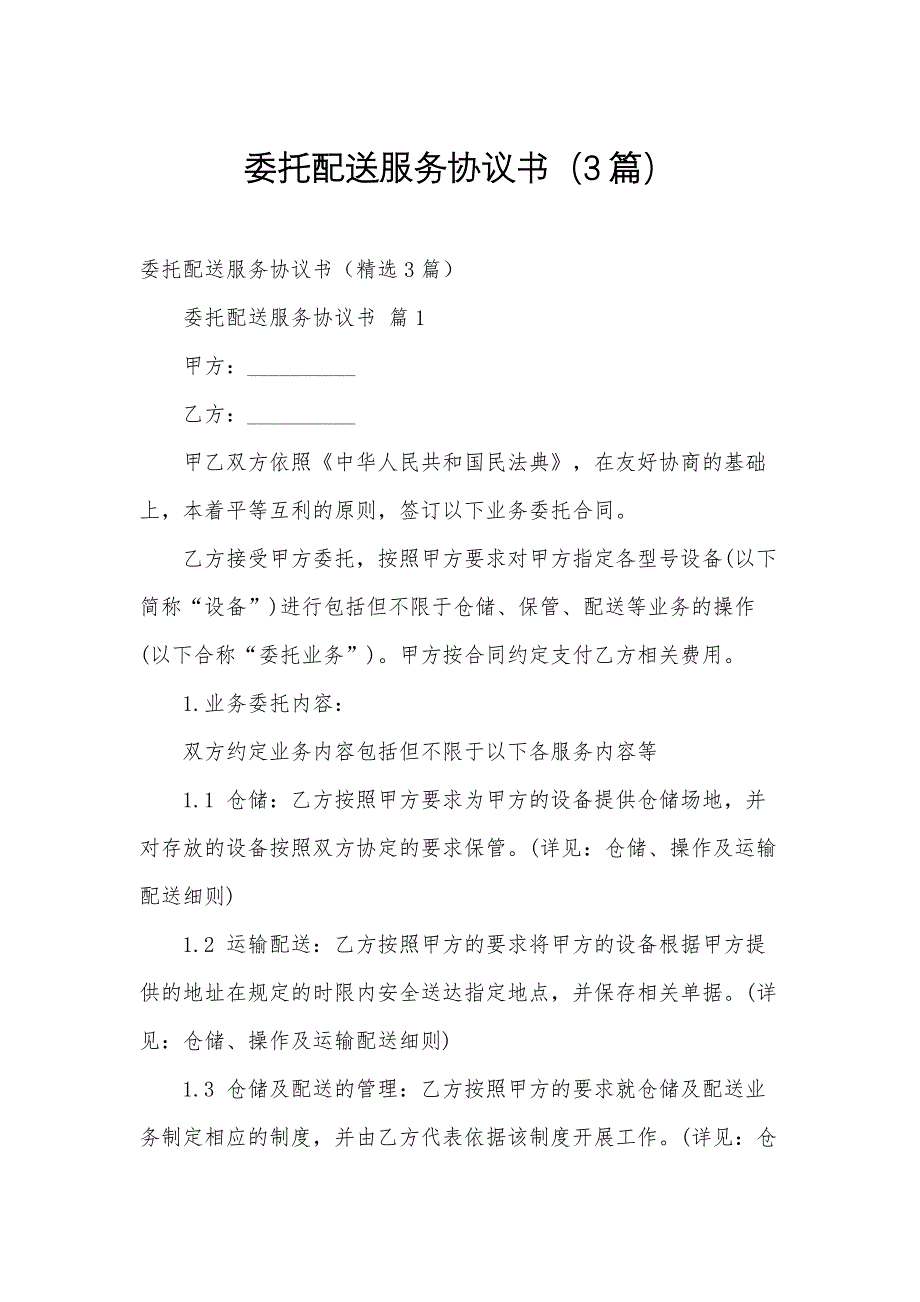 委托配送服务协议书（3篇）
委托配送服务协议书（精选3篇）
委托配送服务协议书 篇1
甲方：__________
乙方：__________
甲乙双方依照《中华人民共和国民法典》，在友好协商的基础
上，本着平等互利的原则，签订以下业务委托合同。
乙方接受甲方委托，按照甲方要求对甲方指定各型号设备(以下
简称“设备”)进行包括但不限于仓储、保管、配送等业务的操作
(以下合称“委托业务”)。甲方按合同约定支付乙方相关费用。
1.业务委托内容：
双方约定业务内容包括但不限于以下各服务内容等
1.1 仓储：乙方按照甲方要求为甲方的设备提供仓储场地，并
对存放的设备按照双方协定的要求保管。(详见：仓储、操作及运输
配送细则)
1.2 运输配送：乙方按照甲方的要求将甲方的设备根据甲方提
供的地址在规定的时限内安全送达指定地点，并保存相关单据。(详
见：仓储、操作及运输配送细则)
1.3 仓储及配送的管理：乙方按照甲方的要求就仓储及配送业
务制定相应的制度，并由乙方代表依据该制度开展工作。(详见：仓